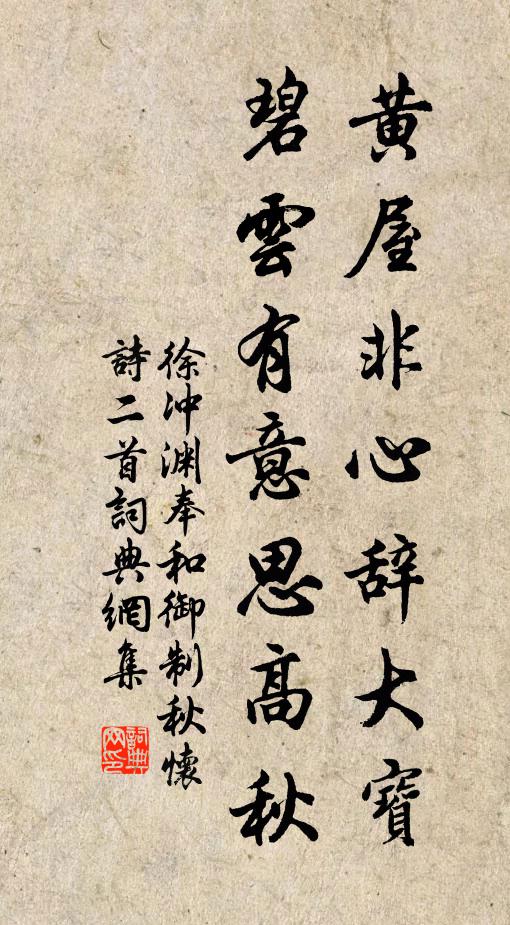 黃屋非心辞大寶
碧雲有意思高秋
徐沖淵奉和御制秋懷
詩二首詞典網集
詞典网印